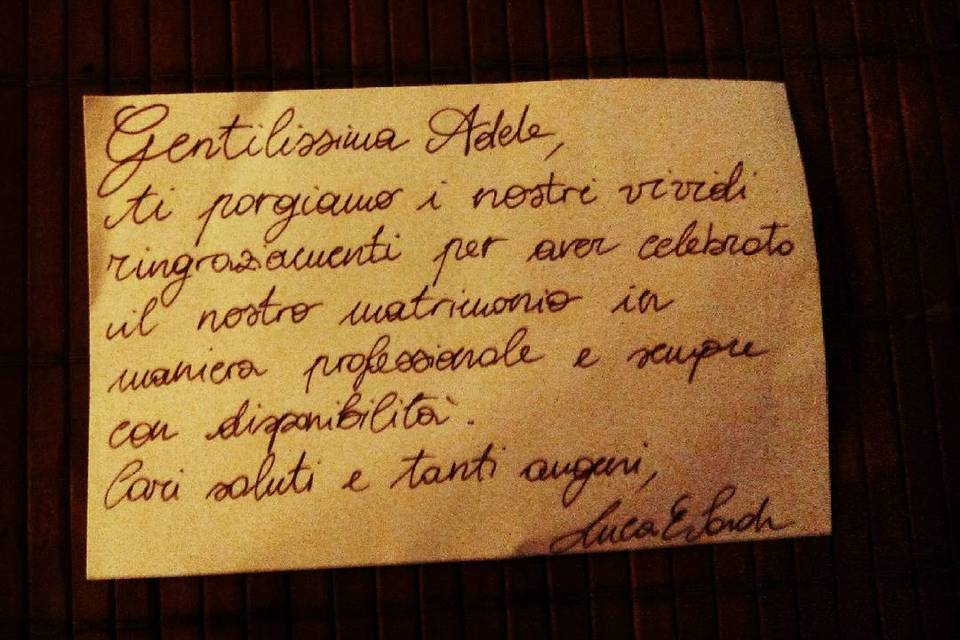 Gentilissima Adele,
ti porgiamo i nostri vividi
ringraziamenti per aver celebrato
il nostro matrimonio in
maniera professionale e sempre
con disponibilità.
Cari saluti e tanti auguri,
Luca E